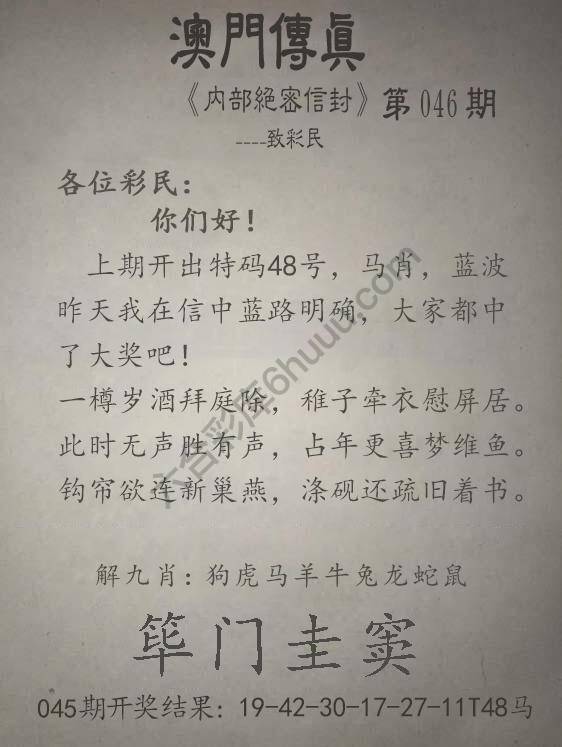 澳門傳真
《内部絕密信封》第046期
----致彩民
各位彩民：
你们好！
上期开出特码48号，马肖，蓝波
昨天我在信中蓝路明确，大家都中
了大奖吧！
一樽岁酒拜庭除，稚子牵衣慰屏居。
此时无声胜有声，占年更喜梦维鱼。
钩帘欲连新巢燕，涤砚还疏旧着书。
解九肖：狗虎马羊牛兔龙蛇鼠
筚门圭窦
045期开奖结果：19-42-30-17-27-11T48马
六合彩库6huuu.com